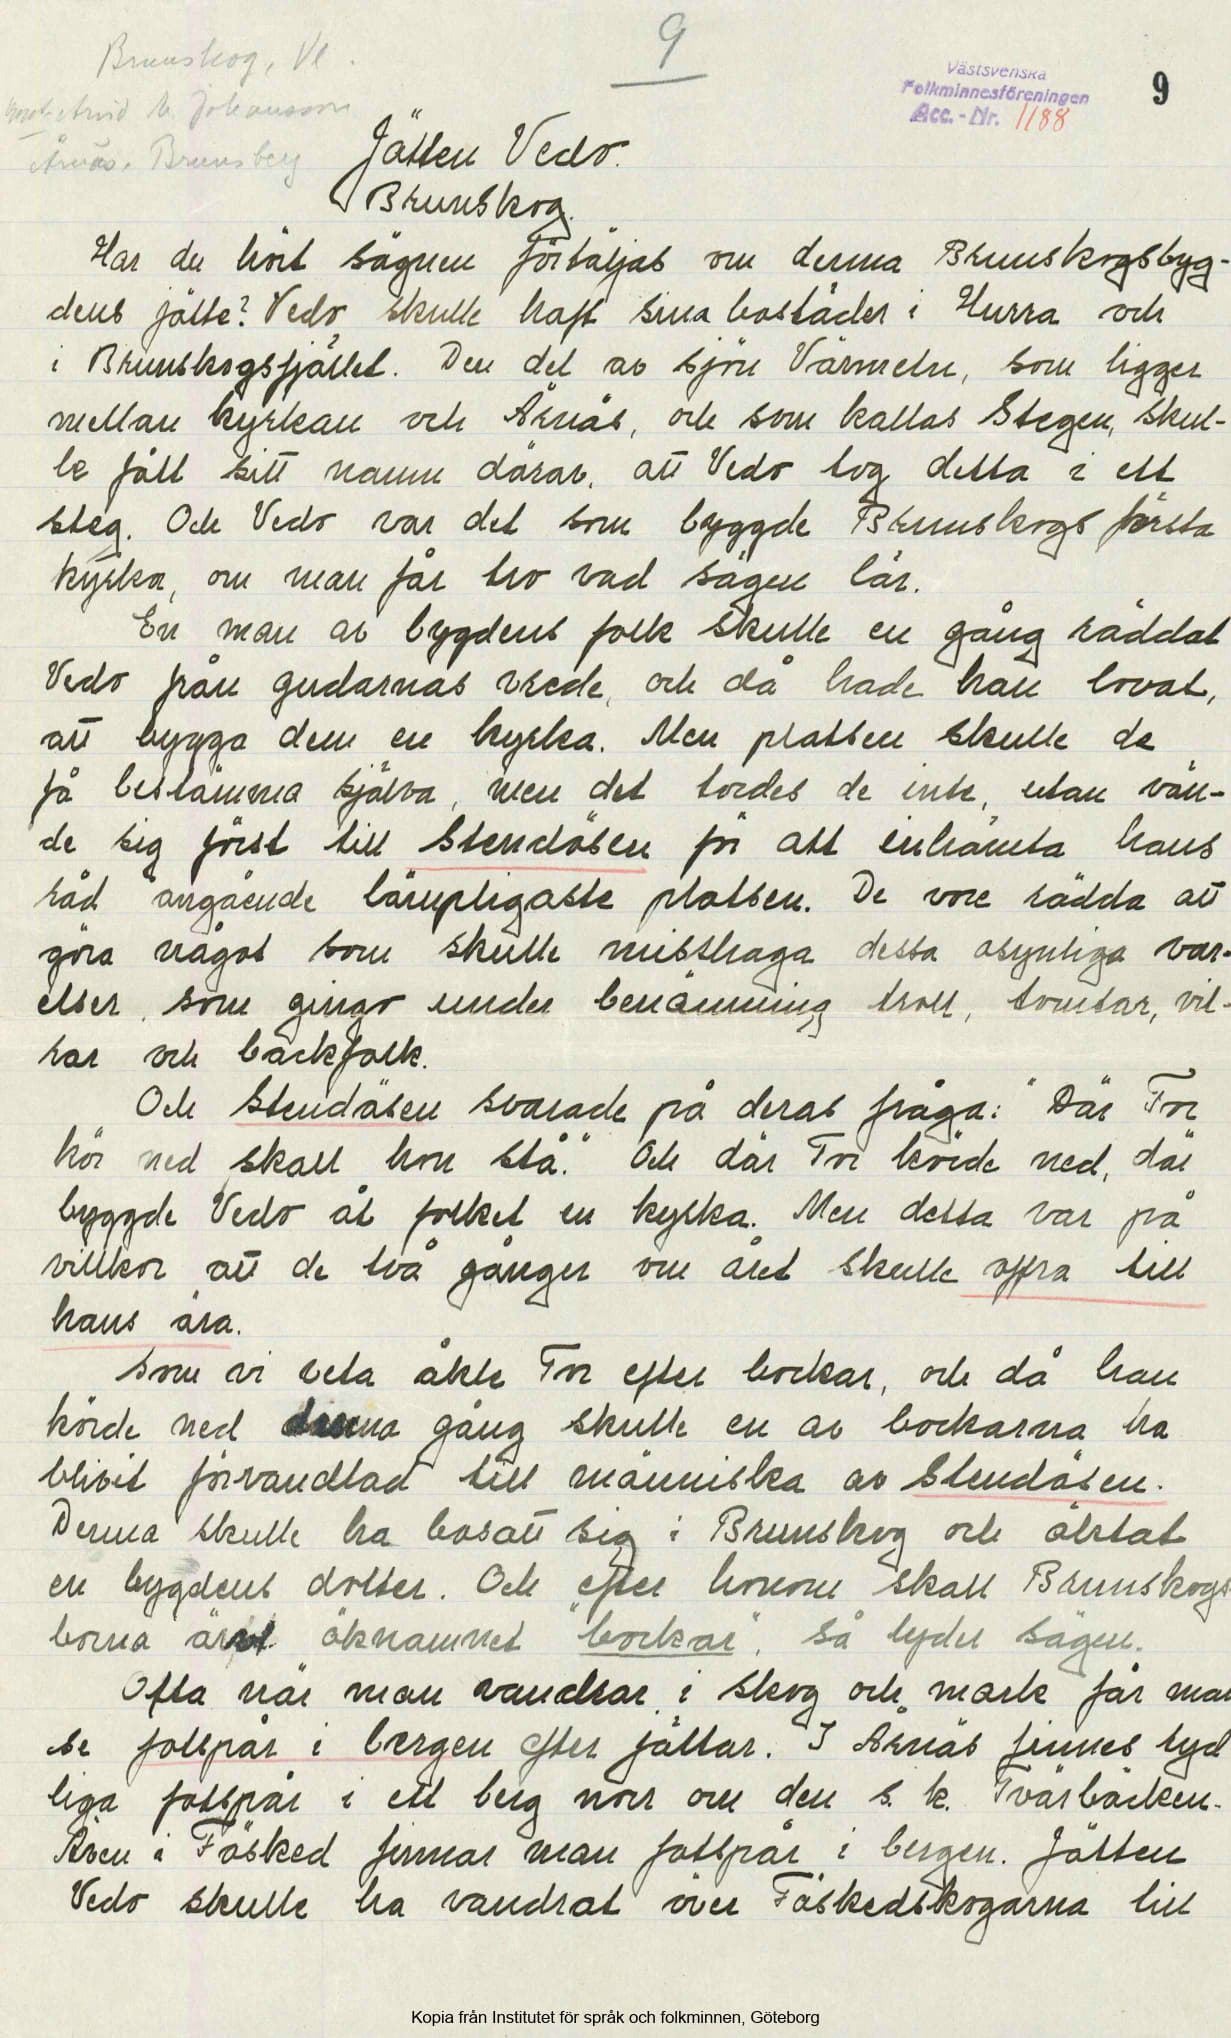 9
Brunskog, Vl.
Västsvenska
Folkminnesföreningen
Acc.-Nr. 1188
9
Arvid V. Johansson
Årnäs, Brunsberg
Jätten Vedo.
Brunskog.
Har du hört sägnen förtäljas om denna Brunskogsbyg-
dens jätte? Vedo skulle haft sina bostäder i Hurra och
i Brunskogsfjället. Den del av sjön Värmeln, som ligger
mellan kyrkan och Årnäs, och som kallas Stegen, skul-
le fått sitt namn därav, att Vedo tog detta i ett
steg. Och Vedo var det som byggde Brunskogs första
kyrka, om man får tro vad sägen lär.
En man av bygdens folk skulle en gång räddat
Vedo från gudarnas vrede, och då hade han lovat,
att bygga dem en kyrka. Men platsen skulle de
få bestämma själva, men det tordes de inte, utan vän-
de sig först till Stendösen för att inhämta hans
råd angående lämpligaste platsen. De vore rädda att
göra något som skulle misshaga dessa osynliga var-
elser, som gingo under benämning troll, tomtar, vit-
rar och backfolk.
Och Stendösen svarade på deras fråga: "Där Tor
kör ned skall hon stå." Och där Tor körde ned, där
byggde Vedo åt folket en kyrka. Men detta var på
villkor att de två gånger om året skulle offra till
hans ära.
Som vi veta åkte Tor efter bockar, och då han
körde ned denna gång skulle en av bockarna ha
blivit förvandlad till människa av Stendösen.
Denna skulle ha bosatt sig i Brunskog och äktat
en bygdens dotter. Och efter honom skall Brunskogs
borna ärvt öknamnet "bockar", så lyder sägen.
Ofta när man vandrar i skog och mark får man
se fotspår i bergen efter jättar. I Årnäs finnes tyd
liga fotspår i ett berg norr om den s. k. Tvärbäcken.
Även i Fösked finnar man fotspår i bergen. Jätten
Vedo skulle ha vandrat över Föskedskogarna till
Kopia från Institutet för språk och folkminnen, Göteborg